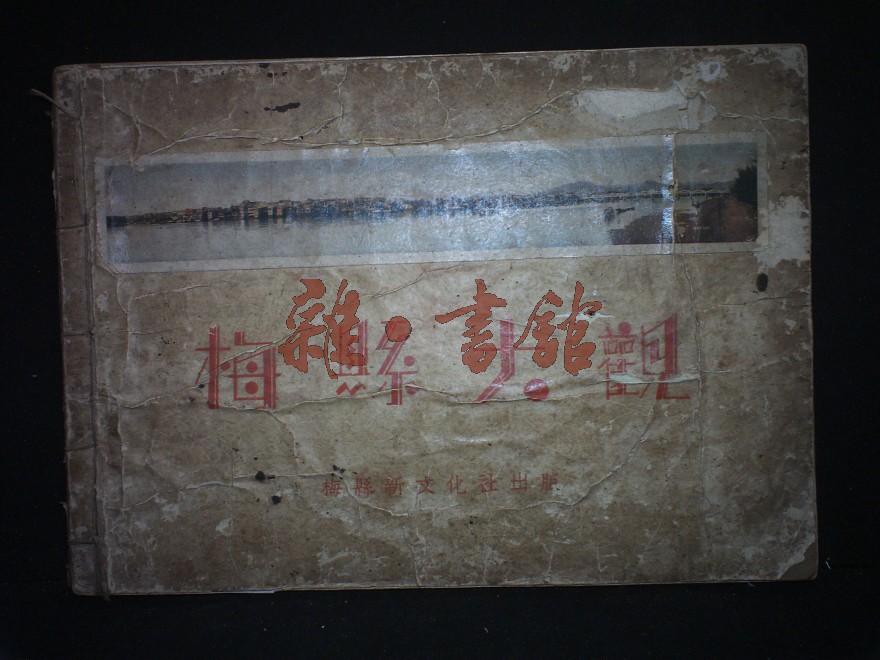 雜·書館
梅縣大觀
梅縣新文化社出版